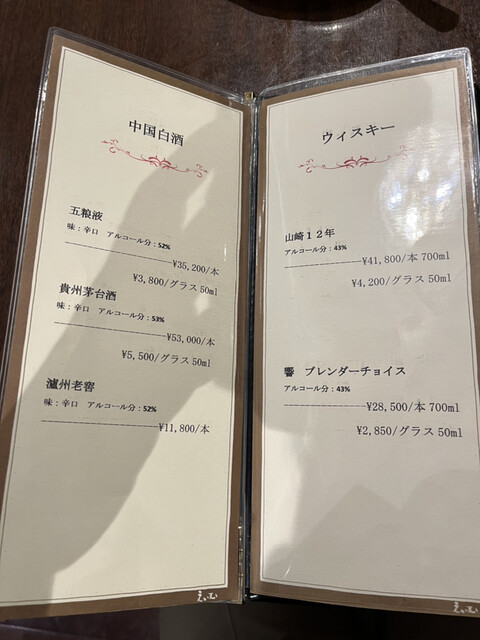 中国白酒
五粮液
味：辛口 アルコール分：52%
¥35,200/本
¥3,800/グラス 50ml
貴州茅台酒
味：辛口 アルコール分：53%
¥53,000/本
¥5,500/グラス 50ml
瀘州老窖
味：辛口 アルコール分：52%
¥11,800/本
ウィスキー
山崎１２年
アルコール分：43%
¥41,800/本 700ml
¥4,200/グラス 50ml
響 ブレンダーチョイス
アルコール分：43%
¥28,500/本 700ml
¥2,850/グラス 50ml